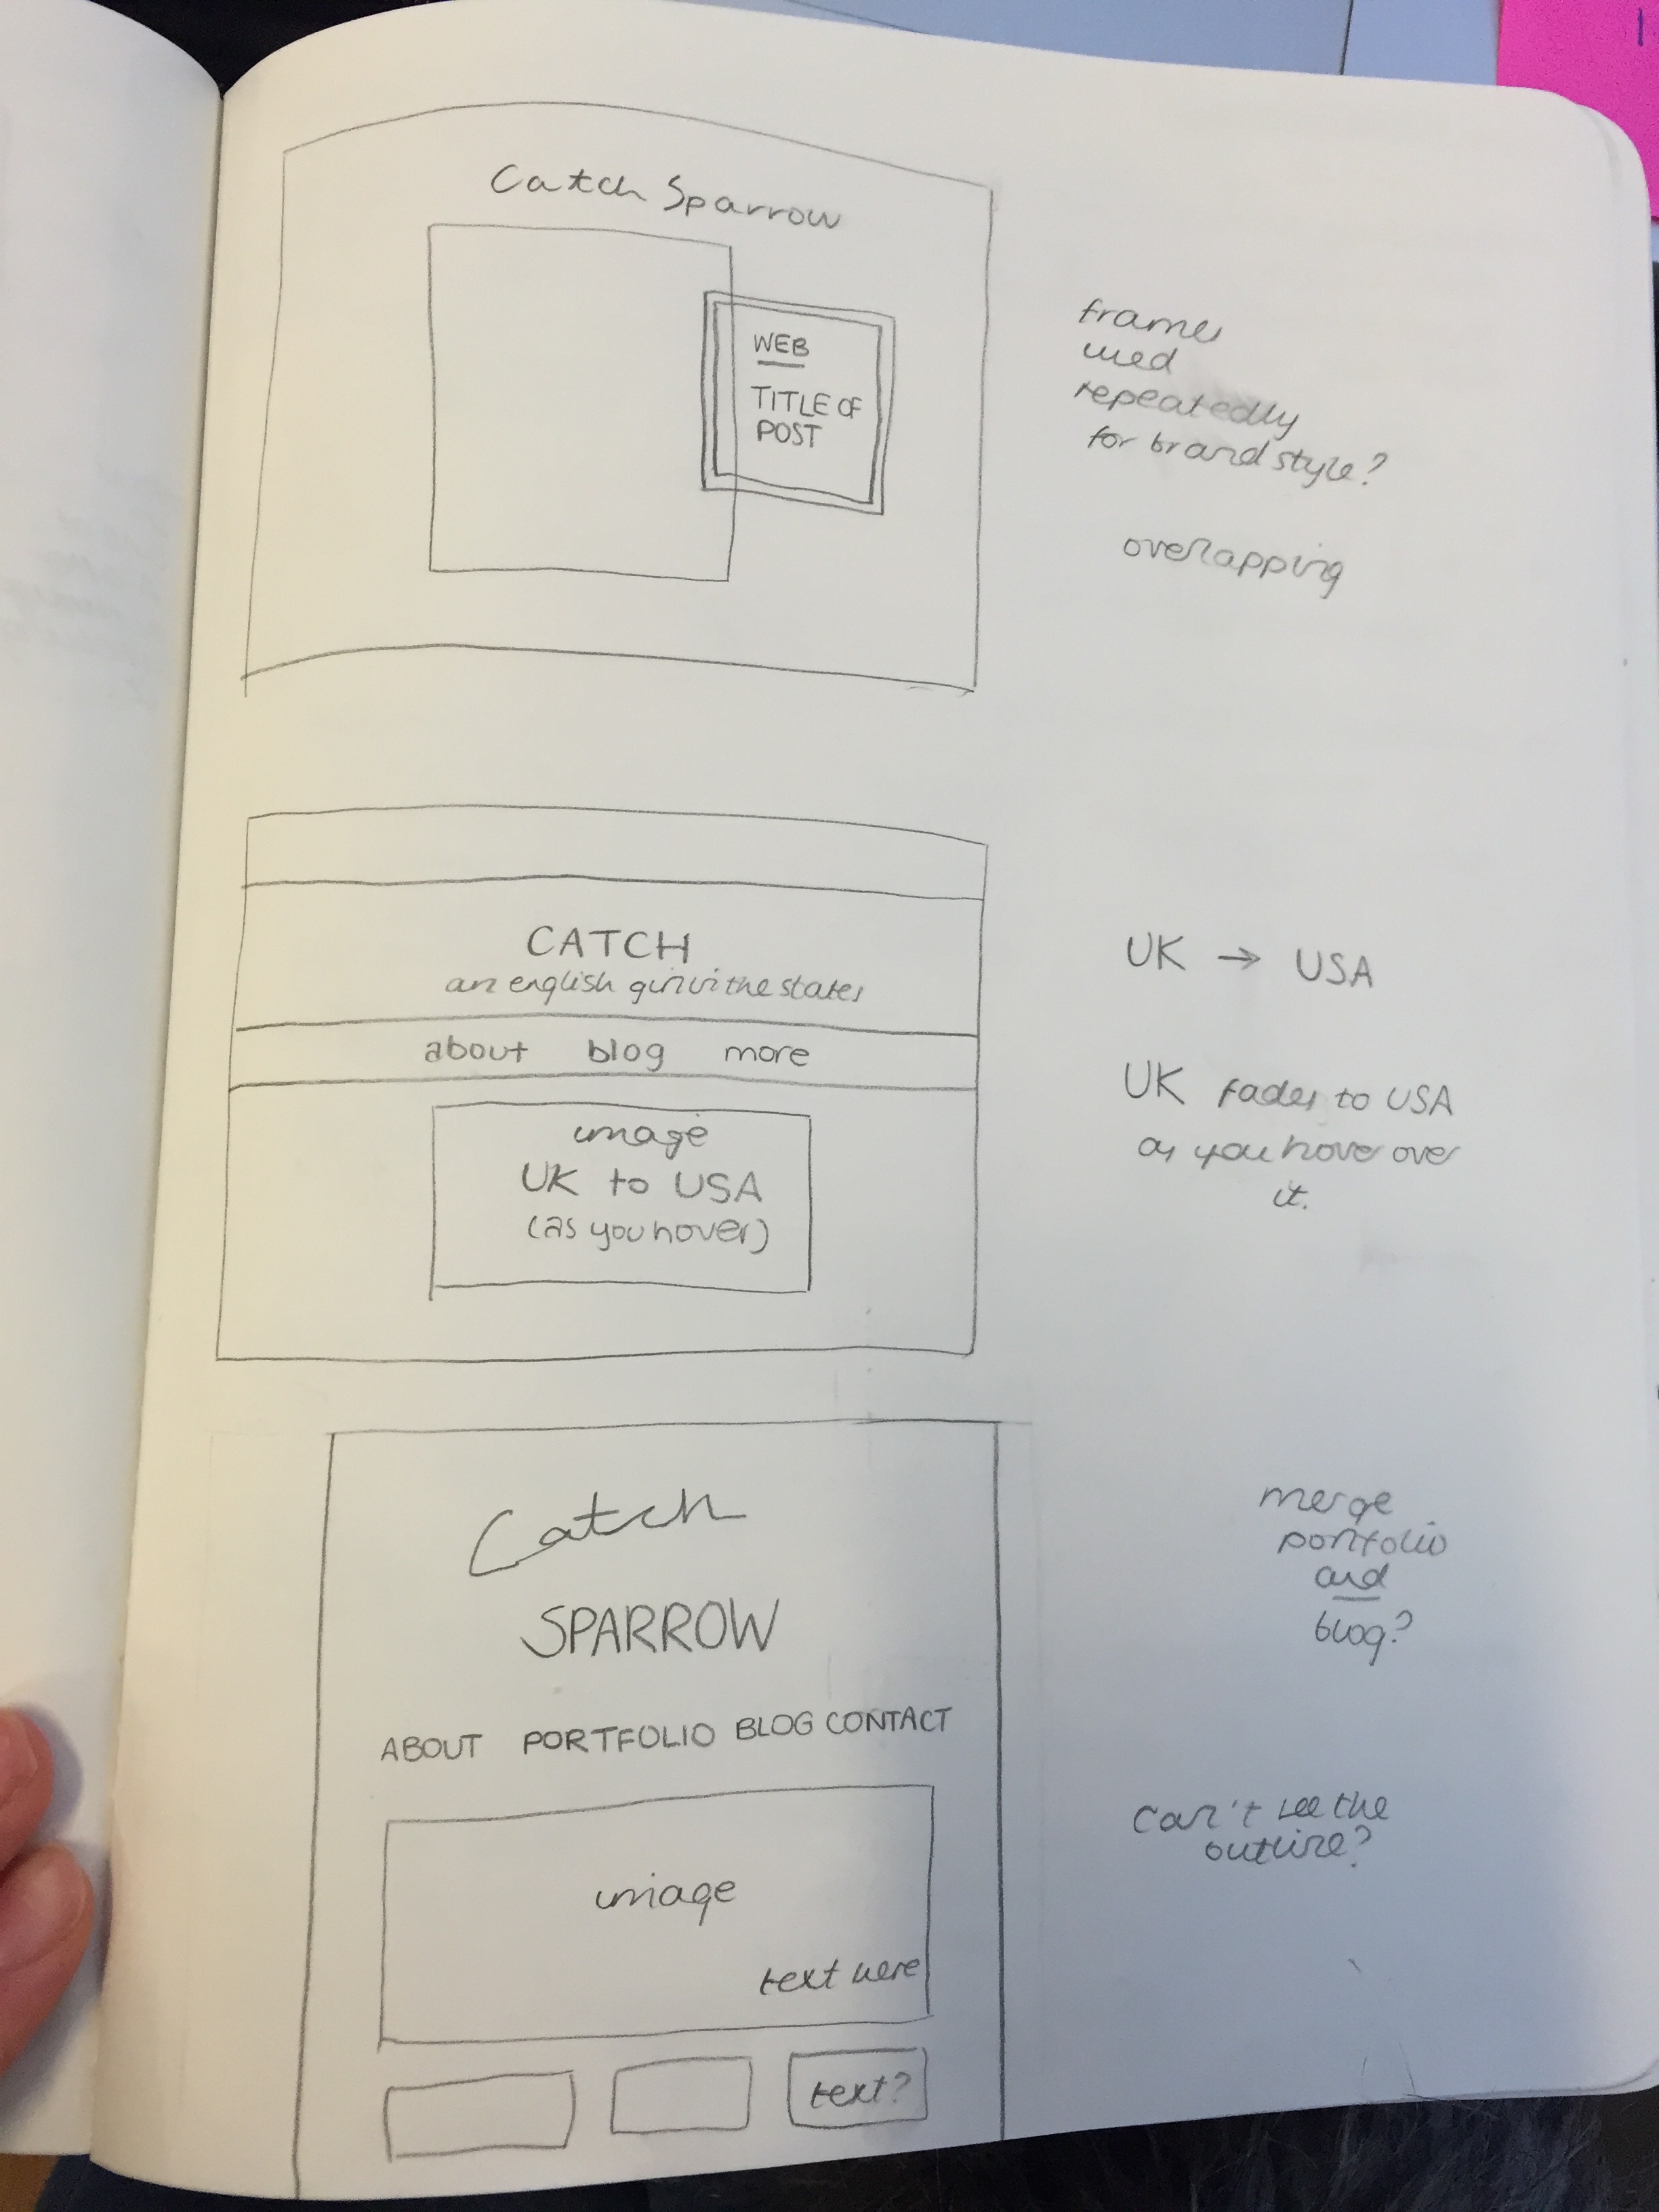 Catch Sparrow
WEB
TITLE OF
POST
frames
used
repeatedly
for brand style?
overlapping
CATCH
an english girl in the states
about blog more
image
UK to USA
(as you hover)
UK → USA
UK fades to USA
as you hover over
it.
Catch
SPARROW
ABOUT PORTFOLIO BLOG CONTACT
image
text here
text?
merge
portfolio
and
blog?
Can't see the
outline?